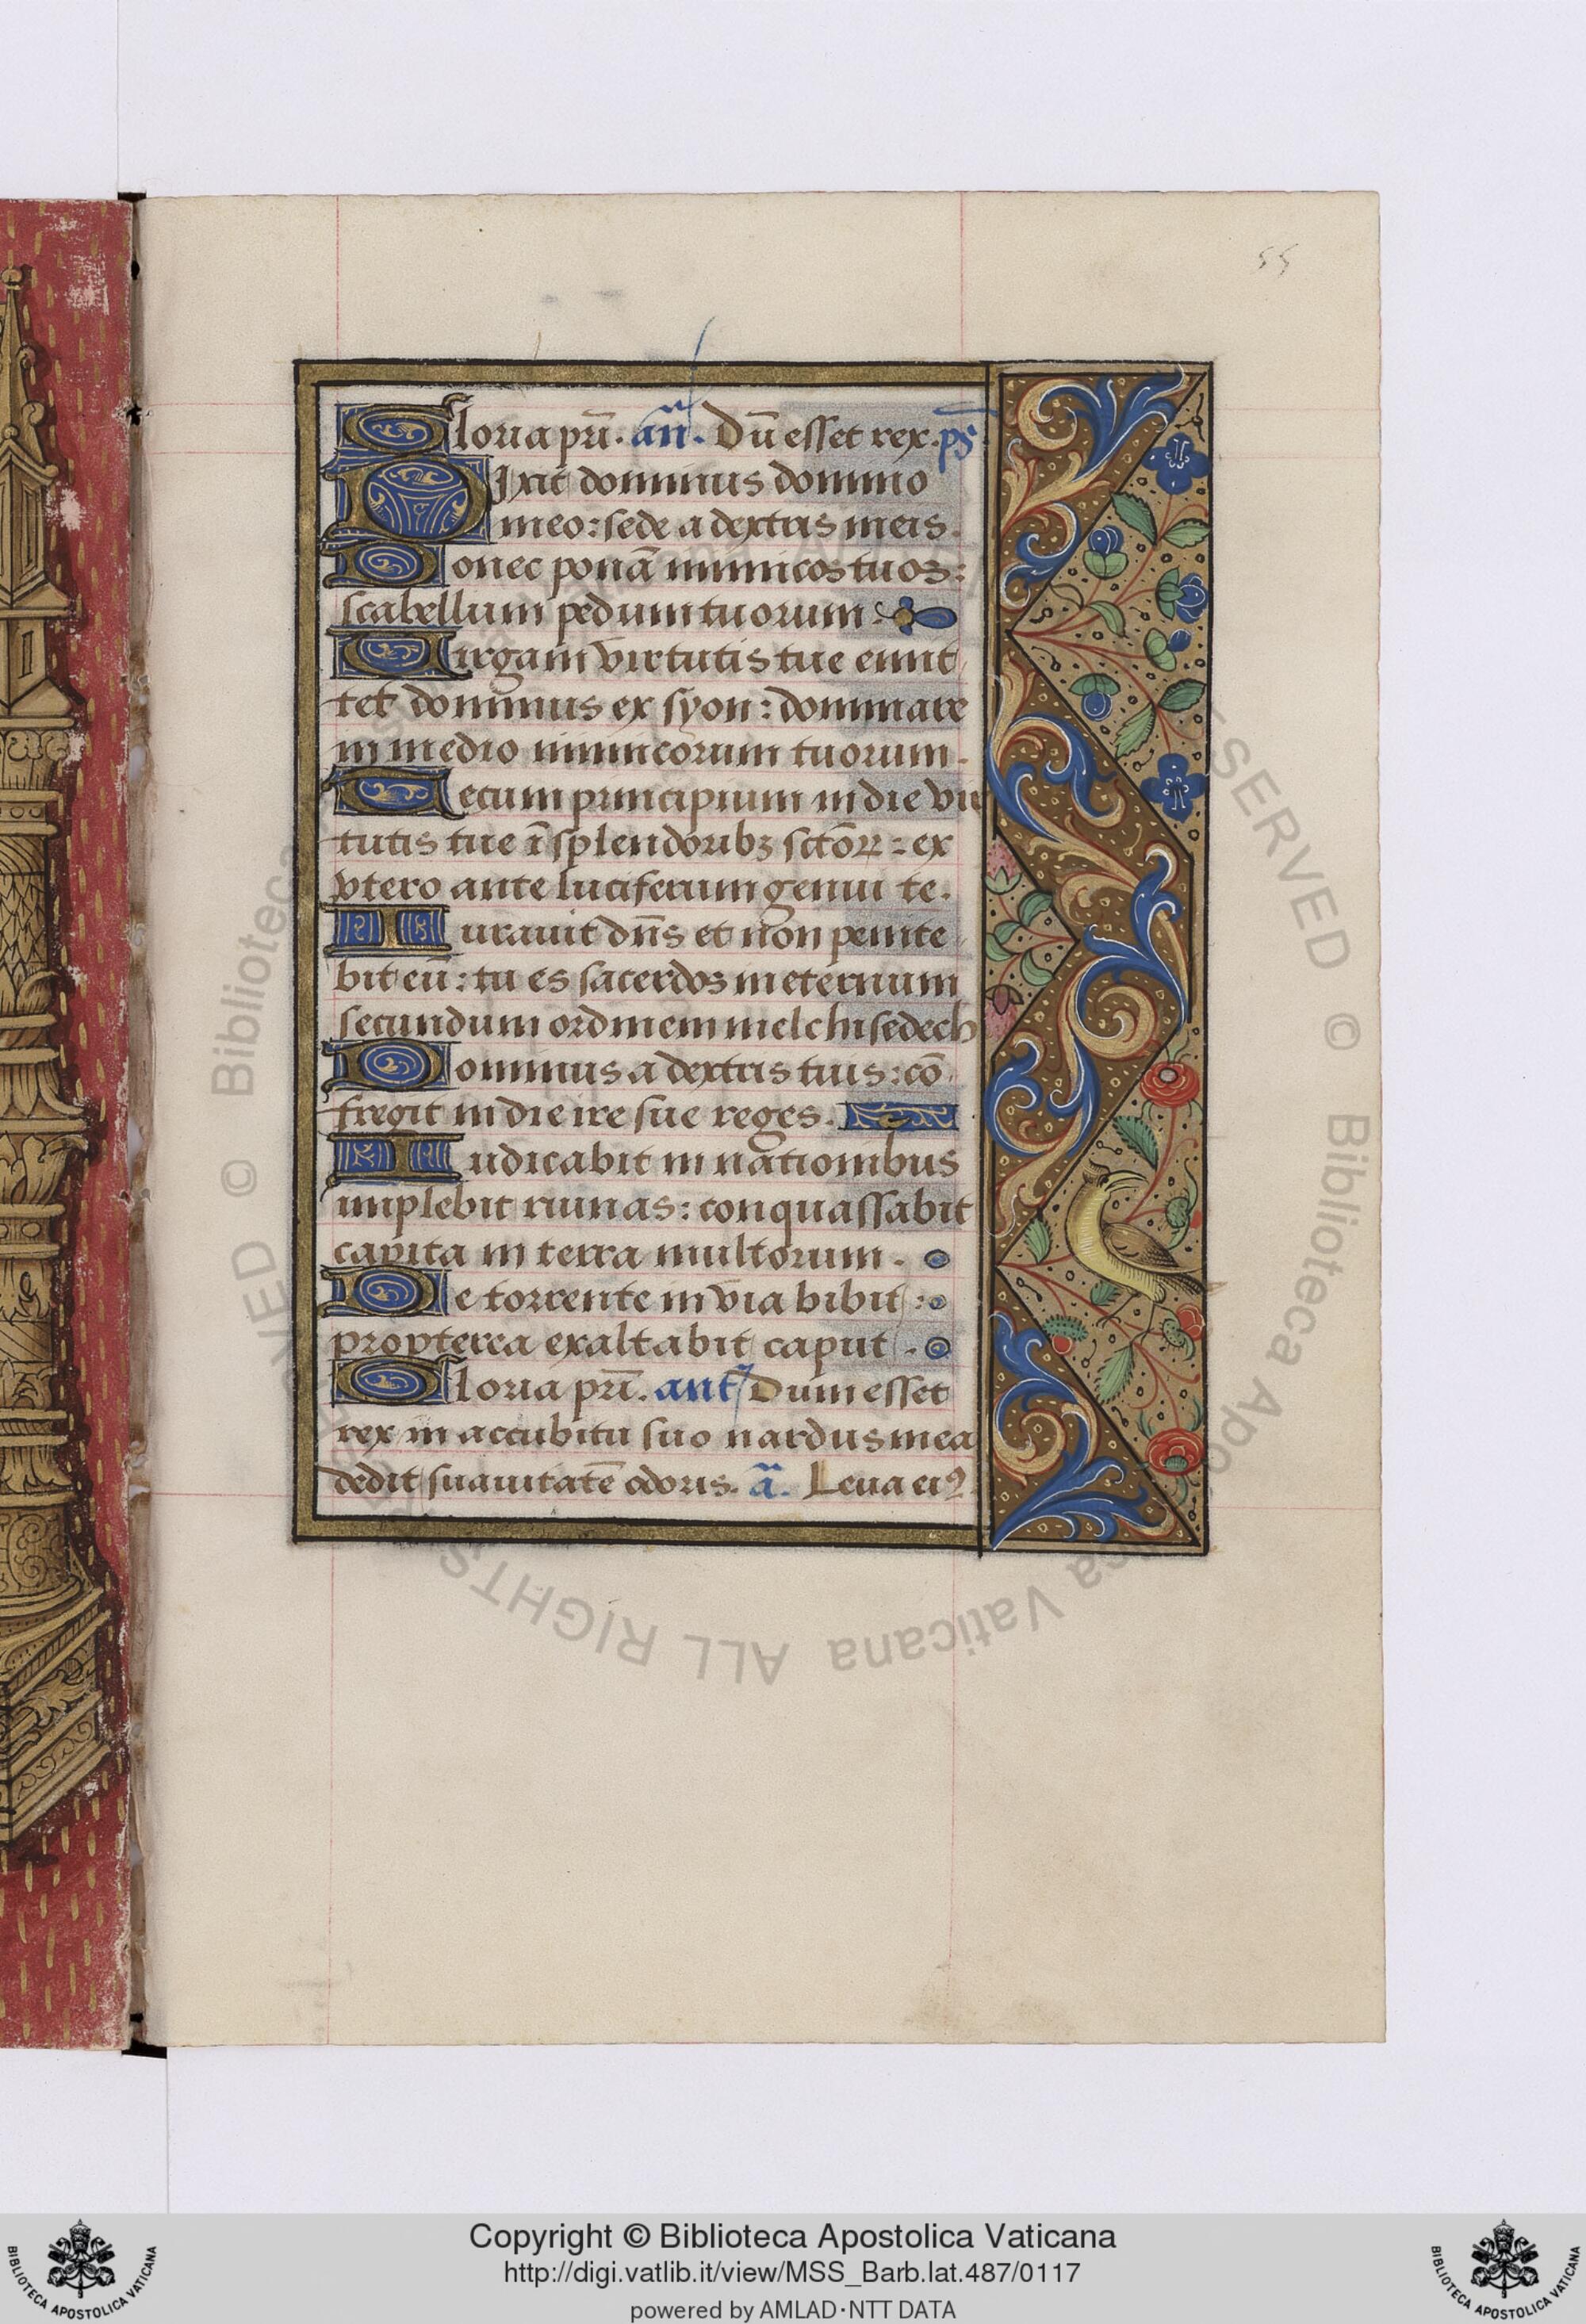 55
Gloria pr̄i. an̄. Dū esset rex. ps̄
Dixit dominus domino
meo: sede a dextris meis.
Donec ponā inimicos tuos:
scabellum pedum tuorum.
Virgam virtutis tue emit
tet dominus ex syon: dominare
in medio inimicorum tuorum.
Tecum principium in die vir
tutis tue ī splendoribꝫ sctōꝝ: ex
vtero ante luciferum genui te.
Iurauit dn̄s et non penite
bit eū: tu es sacerdos in eternum
secundum ordinem melchisedech
Dominus a dextris tuis: cō
fregit in die ire sue reges.
Iudicabit in nationibus
implebit ruinas: conquassabit
capita in terra multorum.
De torrente in via bibit:
propterea exaltabit caput.
Gloria pr̄i. ant̄ Dum esset
rex in accubitu suo nardus mea
dedit suauitatē odoris. ā. Leua eiꝰ
Copyright © Biblioteca Apostolica Vaticana
http://digi.vatlib.it/view/MSS_Barb.lat.487/0117
powered by AMLAD·NTT DATA
BIBLIOTECA APOSTOLICA VATICANA
BIBLIOTECA APOSTOLICA VATICANA
© Biblioteca Apostolica Vaticana ALL RIGHTS RESERVED